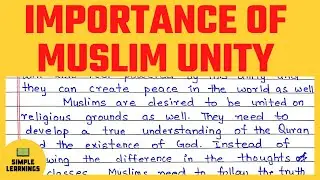 IMPORTANCE OF
MUSLIM UNITY
they can create peace in the world as well
Muslims are desired to be united on
religious grounds as well. They need to
develop a true understanding of the Quran
the existence of God. Instead of
the difference in the thoughts of
classes. Muslims need to follow the truth
SIMPLE
LEARNINGS